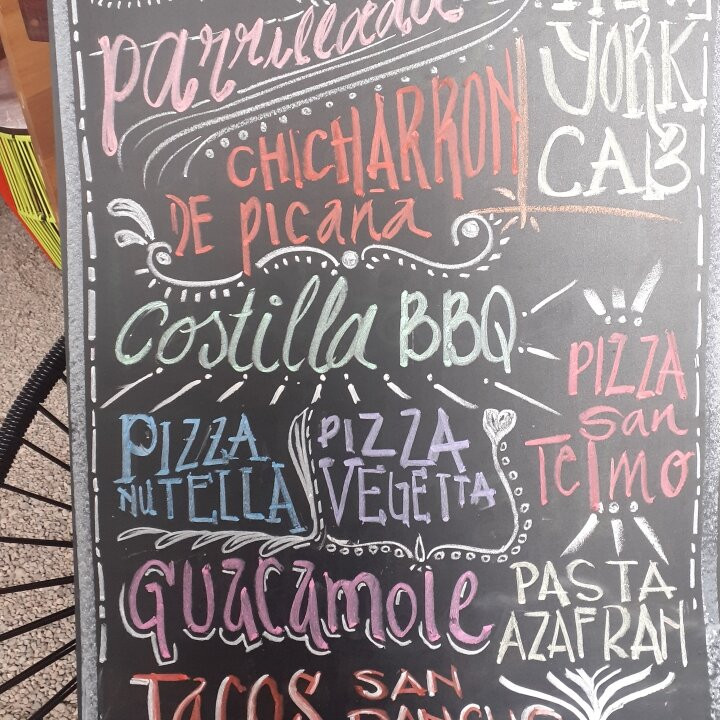 Parrillada
YORK
CAB
CHICHARRON
DE picaña
costilla BBQ
PIZZA
san
Telmo
PIZZA
NUTELLA
PIZZA
VEGETTA
GUacamole
PASTA
AZAFRAN
TACOS
SAN